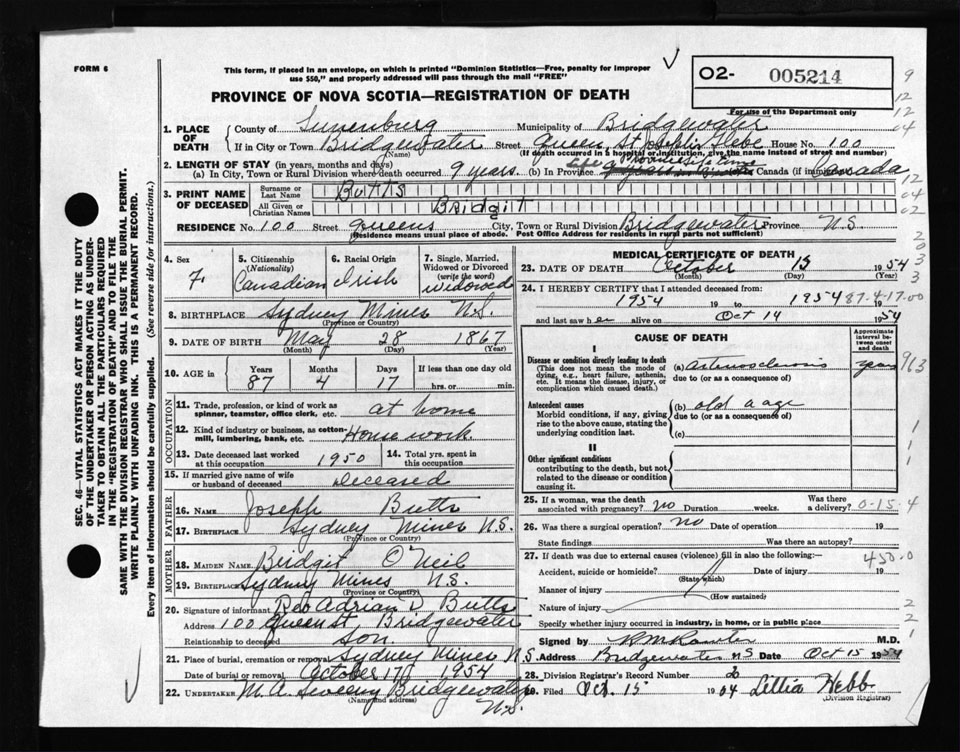 FORM 6
This form, if placed in an envelope, on which is printed "Dominion Statistics—Free, penalty for improper
use $50," and properly addressed will pass through the mail "FREE"
O2- 005214
For use of the Department only
PROVINCE OF NOVA SCOTIA—REGISTRATION OF DEATH
1. PLACE OF DEATH County of Lunenburg Municipality of Bridgewater
If in City or Town Bridgewater Street Queen St Joseph's Glebe House No. 100
(Name) (If death occurred in a hospital or institution, give the name instead of street and number)
2. LENGTH OF STAY (in years, months and days)
(a) In City, Town or Rural Division where death occurred 9 years. (b) In Province Canada (if immigrant) Canada
3. PRINT NAME OF DECEASED Surname or Last Name Butts
All Given or Christian Names Bridgit
RESIDENCE No. 100 Street Queens City, Town or Rural Division Bridgewater Province N.S.
(Residence means usual place of abode. Post Office Address for residents in rural parts not sufficient)
4. Sex F
5. Citizenship (Nationality) Canadian
6. Racial Origin Irish
7. Single, Married, Widowed or Divorced (write the word) Widowed
8. BIRTHPLACE Sydney Mines N.S.
(Province or Country)
9. DATE OF BIRTH May 28 1867
(Month) (Day) (Year)
10. AGE in Years Months Days If less than one day old
87 4 17 hrs. or min.
OCCUPATION
11. Trade, profession, or kind of work as spinner, teamster, office clerk, etc. at home
12. Kind of industry or business, as cotton-mill, lumbering, bank, etc. Housework
13. Date deceased last worked at this occupation 1950
14. Total yrs. spent in this occupation
15. If married give name of wife or husband of deceased Deceased
FATHER
16. NAME Joseph Butts
17. BIRTHPLACE Sydney Mines N.S.
(Province or Country)
MOTHER
18. MAIDEN NAME Bridgit O'Neil
19. BIRTHPLACE Sydney Mines N.S.
(Province or Country)
20. Signature of informant Rev Adrian D Butts
Address 100 Queen St, Bridgewater
Relationship to deceased Son.
21. Place of burial, cremation or removal Sydney Mines N.S.
Date of burial or removal October 17th 1954
22. UNDERTAKER M.A. Sweeny Bridgewater
(Name and address) N.S.
MEDICAL CERTIFICATE OF DEATH
23. DATE OF DEATH October 15 1954
(Month) (Day)
24. I HEREBY CERTIFY that I attended deceased from:
1954 19 to 1954 19
87-4-17.00
and last saw her alive on Oct 14 1954
CAUSE OF DEATH
Approximate interval between onset and death
I
Disease or condition directly leading to death
(This does not mean the mode of dying, e.g., heart failure, asthenia, etc. It means the disease, injury, or complication which caused death.)
(a) arteriosclerosis years
due to (or as a consequence of)
Antecedent causes
Morbid conditions, if any, giving rise to the above cause, stating the underlying condition last.
(b) old age
due to (or as a consequence of)
(c)
II
Other significant conditions
contributing to the death, but not related to the disease or condition causing it.
25. If a woman, was the death associated with pregnancy? no Duration weeks. Was there a delivery? 0-15-4
26. Was there a surgical operation? no Date of operation 19
State findings Was there an autopsy?
27. If death was due to external causes (violence) fill in also the following:—
450.0
Accident, suicide or homicide? Date of injury 19
(State which)
Manner of injury
(How sustained)
Nature of injury
Specify whether injury occurred in industry, in home, or in public place
Signed by M.D.
Address Bridgewater N.S. Date Oct 15 1954
28. Division Registrar's Record Number
29. Filed Oct. 15 Lillia Webb
(Division Registrar)
SEC. 46—VITAL STATISTICS ACT MAKES IT THE DUTY
OF THE UNDERTAKER OR PERSON ACTING AS UNDER-
TAKER TO OBTAIN ALL THE PARTICULARS REQUIRED
IN THE "REGISTRATION OF DEATH" AND TO FILE THE
SAME WITH THE DIVISION REGISTRAR WHO SHALL ISSUE THE BURIAL PERMIT.
WRITE PLAINLY WITH UNFADING INK. THIS IS A PERMANENT RECORD.
Every item of information should be carefully supplied. (See reverse side for instructions.)
9
12
12
04
12
04
02
2
0
3
3
3
963
1
1
1
2
2
1